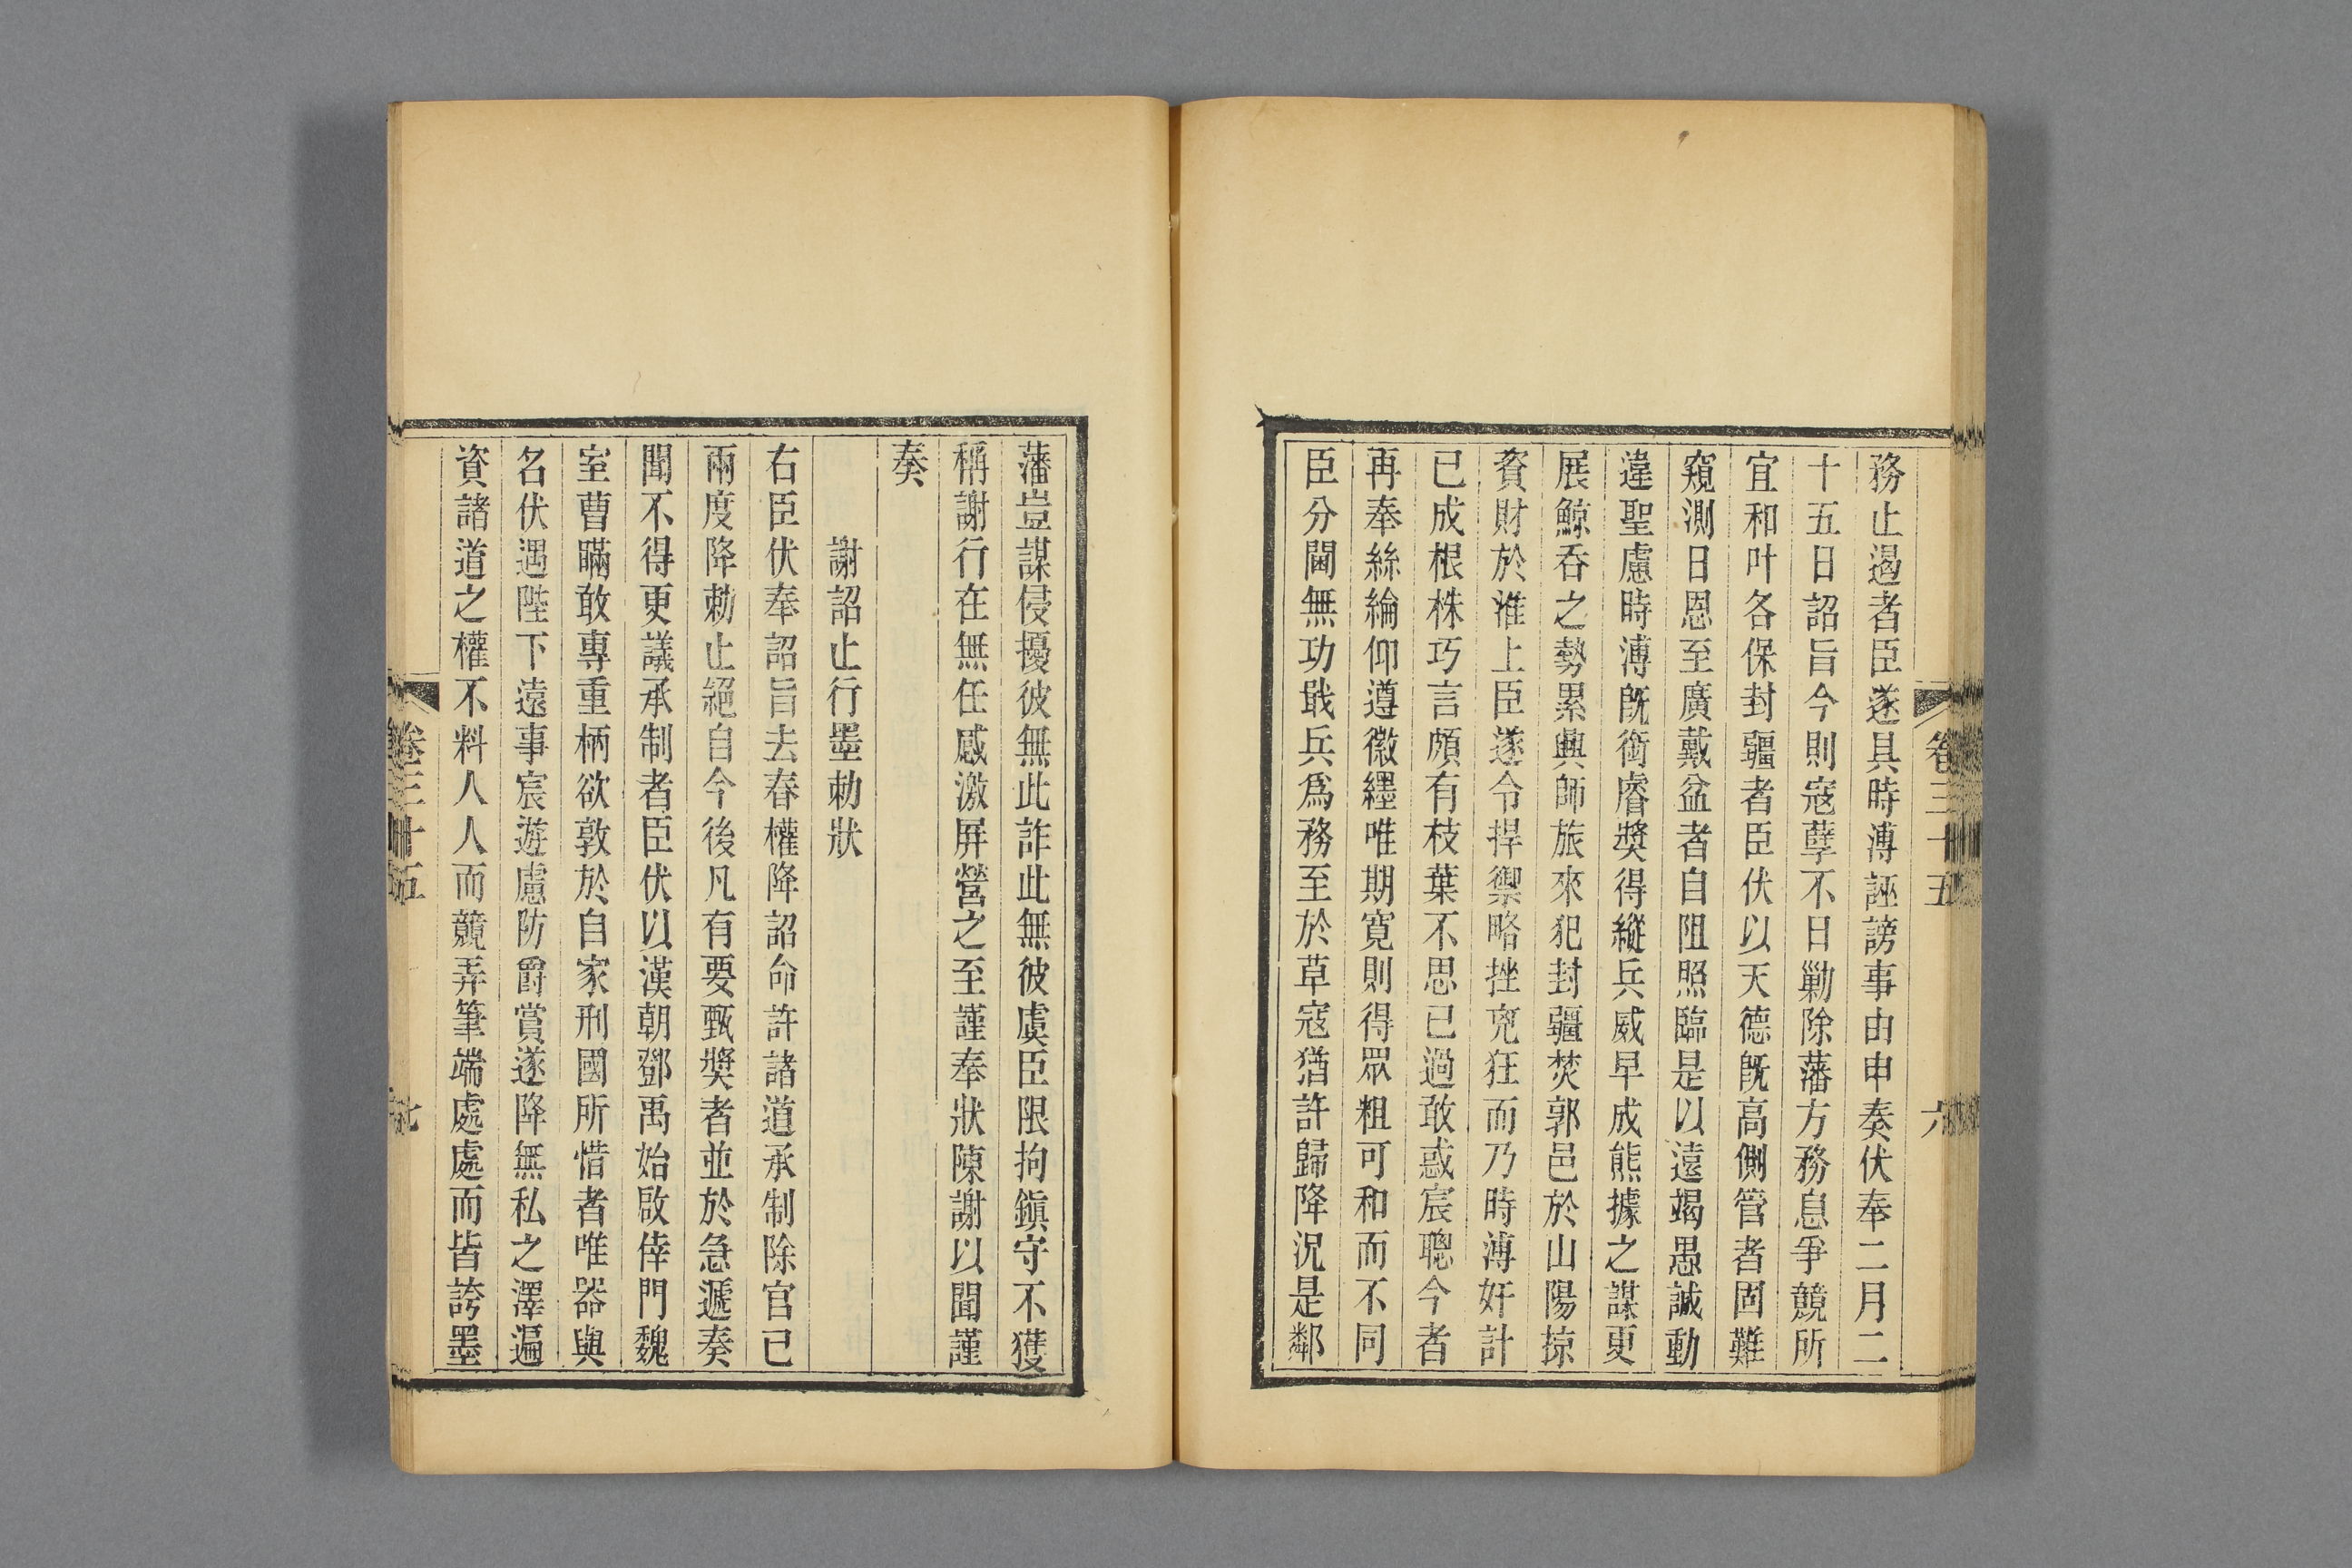 卷三十五
六
務止遏者臣遂具時溥誣謗事由申奏伏奉二月二
十五日詔旨今則寇孽不日勦除藩方務息爭競所
宜和叶各保封疆者臣伏以天德旣高側管者固難
窺測日恩至廣戴盆者自阻照臨是以遠竭愚誠動
違聖慮時溥旣銜睿獎得縱兵威早成熊據之謀更
展鯨吞之勢累興師旅來犯封疆焚郭邑於山陽掠
資財於淮上臣遂令捍禦略挫兇狂而乃時溥奸計
已成根株巧言頗有枝葉不思已過敢惑宸聰今者
再奉絲綸仰遵徽纆唯期寬則得眾粗可和而不同
臣分閫無功戢兵爲務至於草寇猶許歸降況是鄰
藩豈謀侵擾彼無此詐此無彼虞臣限拘鎭守不獲
稱謝行在無任感激屏營之至謹奉狀陳謝以聞謹
奏
謝詔止行墨勅狀
右臣伏奉詔旨去春權降詔命許諸道承制除官已
兩度降勅止絕自今後凡有要甄獎者並於急遞奏
聞不得更議承制者臣伏以漢朝鄧禹始啟倖門魏
室曹瞞敢專重柄欲敦於自家刑國所惜者唯器與
名伏遇陛下遠事宸遊慮防爵賞遂降無私之澤遍
資諸道之權不料人人而競弄筆端處處而皆誇墨
卷三十五
七